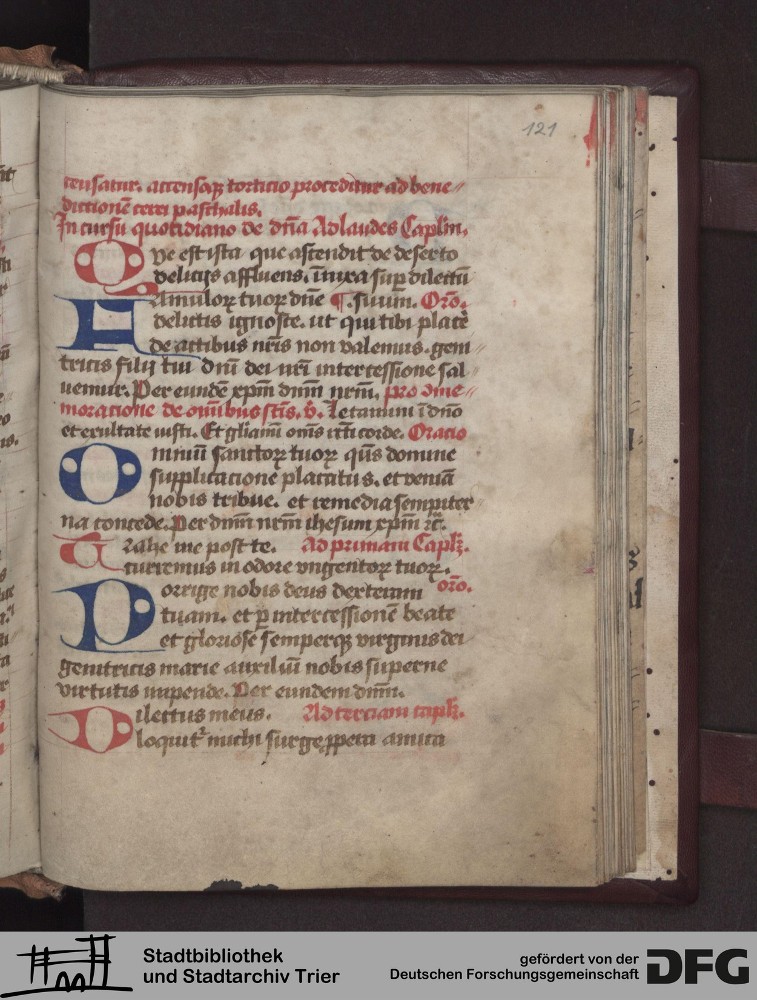 121
censatur. accensoq; torticio proceditur ad bene//
dictionē cerei paschalis.
In cursu quotidiano de dn̄a Ad laudes Caplm̄.
Que est ista que ascendit de deserto
delicijs affluens. īnixa sup̱ dilectū
Famuloꝝ tuoꝝ dn̄e ¶. suum. Orō.
delictis ignosce. ut qui tibi placē
de actibus nr̄is non valemus. geni//
tricis filij tui dn̄i dei nr̄i intercessione sal//
uemur. Per eundē xp̄m dn̄m nr̄m. pro ome//
moracione de om̄ibus sc̄is. v̄. Letamini ī dn̄o
et exultate iusti. Et gl̄iamī om̄s r̄cti corde. Oracio
Omniū sanctoꝝ tuoꝝ qūs domine
supplicacione placatus. et veniā
nobis tribue. et remedia sempiter
na concede. Per dn̄m nr̄m ihesum xp̄m ⁊c̄.
Trahe me post te. Ad primam Caplꝫ.
curremus in odore vngentoꝝ tuoꝝ.
Porrige nobis deus dexteram orō.
tuam. et ꝑ intercessionē beate
et gloriose semperqꝫ virginis dei
genitricis marie auxiliū nobis superne
virtutis impende. Per eundem dn̄m.
Dilectus meus. Ad terciam caplꝫ.
loquitᷣ michi surge ꝓpera amica
Stadtbibliothek
und Stadtarchiv Trier
gefördert von der
Deutschen Forschungsgemeinschaft
DFG